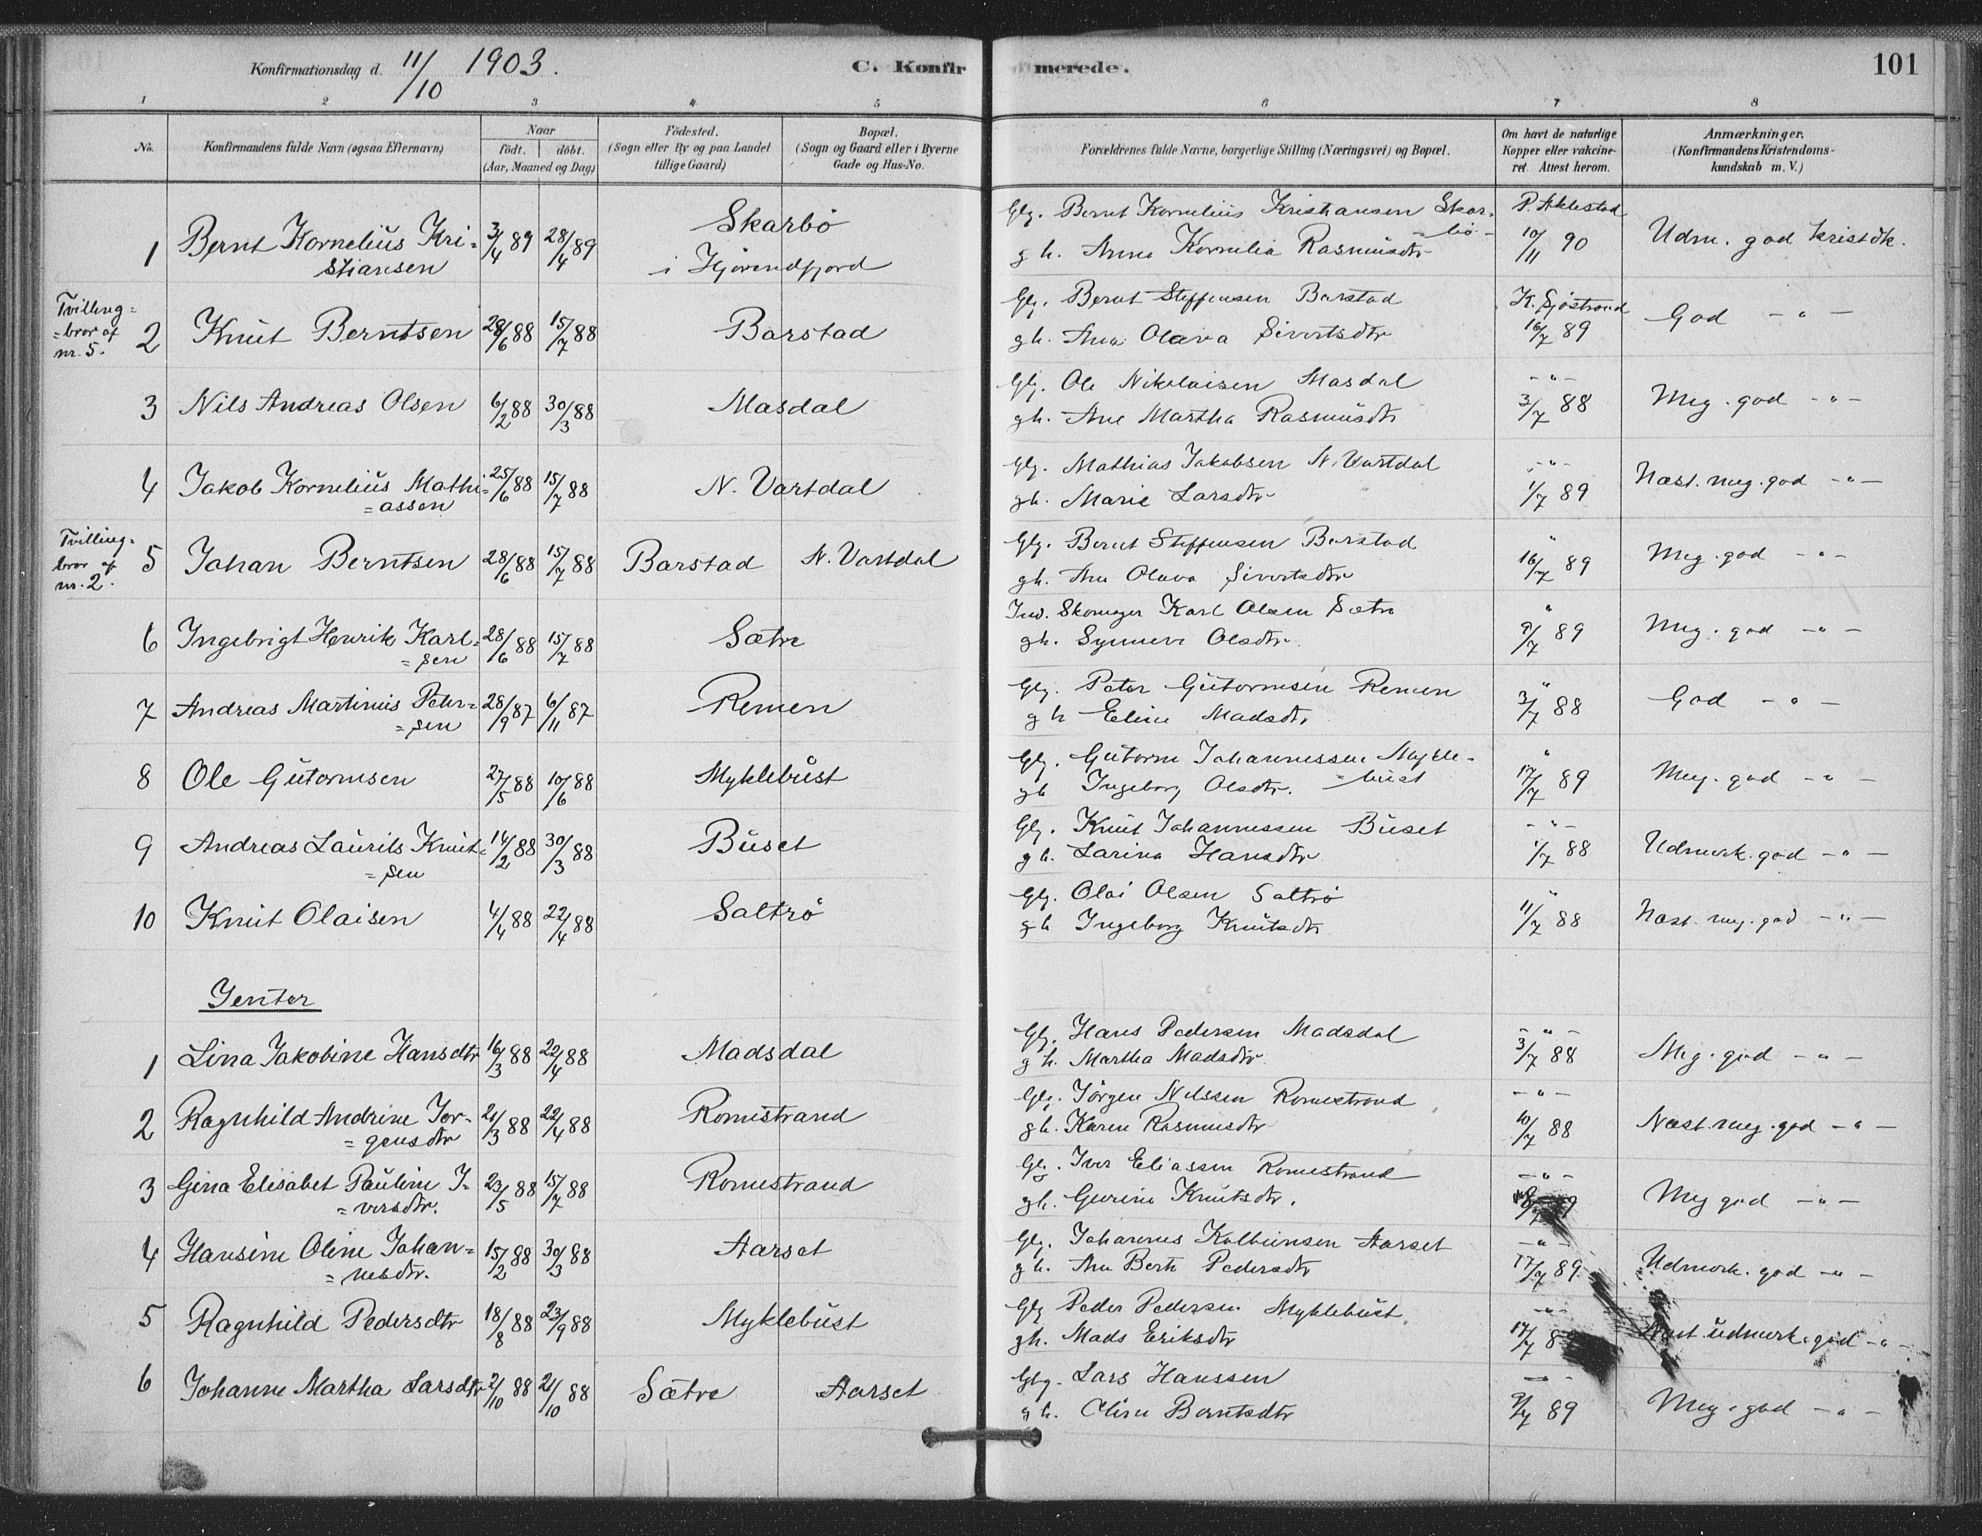 Konfirmationsdag d. 11/10 1903.
C. Konfirmerede.
101
1 2 3 4 5 6 7 8
No.
Konfirmandens fulde Navn (ogsaa Efternavn)
Naar
födt. döbt.
(Aar, Maaned og Dag)
Födested.
(Sogn eller By og paa Landet
tillige Gaard)
Bopæl.
(Sogn og Gaard eller i Byerne
Gade og Hus-No.
Forældrenes fulde Navne, borgerlige Stilling (Næringsvei) og Bopæl.
Om havt de naturlige
Kopper eller vakcine-
ret. Attest herom.
Anmærkninger.
(Konfirmandens Kristendoms-
kundskab m. V.)
1 Bernt Kornelius Kri= 3/4 89 28/4 89 Skarbö
stiansen i Hjörendfjord
Glg. Bernt Kornelius Kristiansen Skar-
bö-
g h. Anne Kornelia Rasmusdtr
P. Aklestad
10/11 90
Udm. god kristdk.
Tvilling=
=bror af
nr. 5.
2 Knut Berntsen 28/6 88 15/7 88 Barstad
Glg. Bernt Steffensen Barstad
gh. Ana Olava Sivertsdtr
K. Sjöstrand
16/7 89
God - " -
3 Nils Andreas Olsen 6/2 88 30/3 88 Masdal
Glg. Ole Nikolaisen Masdal
gh. Ane Martha Rasmusdtr
- " -
3/7 88
Meg. god - " -
4 Jakob Kornelius Mathi= 25/6 88 15/7 88 N. Vartdal
=assen
Glg. Mathias Jakobsen N. Vartdal
gh. Marie Larsdtr
- " -
1/7 89
Næst. meg. god - " -
Tvilling-
bror af
nr. 2.
5 Johan Berntsen 28/6 88 15/7 88 Barstad N. Vartdal
Glg. Bernt Steffensen Barstad
gh. Ane Olava Sivertsdtr
"
16/7 89
Meg. god - " -
6 Ingebrigt Henrik Karl= 28/6 88 15/7 88 Sætre
=sen
Ind. Skomager Karl Olsen Sætre
gh. Synneve Olsdtr.
"
9/7 89
Meg. god - " -
7 Andreas Martinus Peter= 28/9 87 6/11 87 Remen
=sen
Glg. Peter Gutormsen Remen
g h Eline Madsdtr
"
3/7 88
God - " -
8 Ole Gutormsen 27/5 88 10/6 88 Myklebust
Glg. Gutorm Johannessen Mykle-
bust
gh Ingeborg Olsdtr.
"
17/7 89
Meg. god - " -
9 Andreas Laurits Knut= 14/2 88 30/3 88 Buset
=sen
Glg. Knut Johannessen Buset
gh. Larina Hansdtr
- " -
1/7 88
Udmerk. god - " -
10 Knut Olaisen 4/4 88 22/4 88 Saltrö
Glg. Olai Olsen Saltrö
gh Ingeborg Knutsdtr
"
11/7 88
Næst. meg. god - " -
Jenter
1 Lina Jakobine Hansdtr 16/3 88 22/4 88 Madsdal
Glg. Hans Pedersen Madsdal
g h. Martha Madsdtr
- " -
3/7 88
Meg. god - " -
2 Ragnhild Andrine Jör- 21/3 88 22/4 88 Romestrand
=gensdtr
Glg. Jörgen Nilssen Romestrand
gh. Karen Rasmusdtr
- " -
10/7 88
Næst. meg. god - " -
3 Gina Elisabet Pauline I- 23/5 88 15/7 88 Romestrand
=versdtr.
Glg. Iver Eliassen Romestrand
gh. Gurine Knutsdtr.
- " -
Meg god - " -
4 Hansine Oline Johan= 15/2 88 30/3 88 Aarset
=nesdtr.
Glg. Johannes Kolbeinsen Aarset
gh. Ane Berte Pedersdtr
- " -
17/7 89
Udmerk. god - " -
5 Ragnhild Pedersdtr 18/8 88 23/9 88 Myklebust
Glg Peder Pedersen Myklebust.
gh. Mads Eriksdtr
- " -
17/7
Næst udmerk. god - " -
6 Johanne Martha Larsdtr 2/10 88 21/10 88 Sætre Aarset
Gbg. Lars Hanssen
g h. Oline Berntsdtr
9/7 89
Meg. god - " -